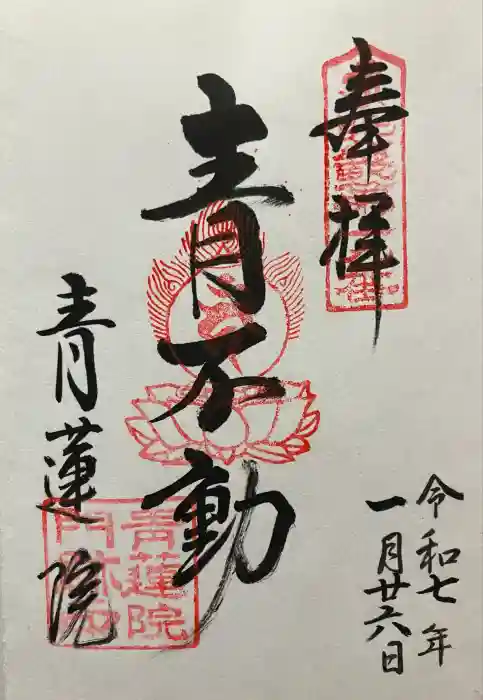 奉拝
青不動
青蓮院
令和七年
一月廿六日
青蓮院
門跡